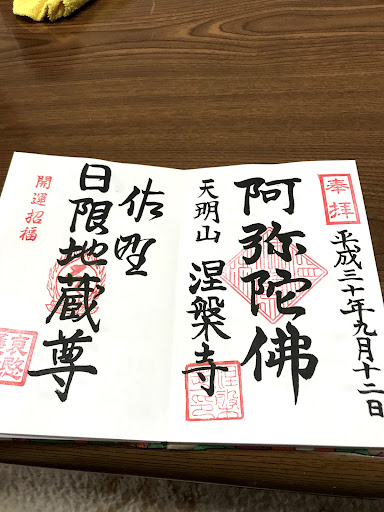 奉拝
平成三十年九月十二日
阿弥陀佛
天明山 涅槃寺
佐野
日限地蔵尊
開運招福